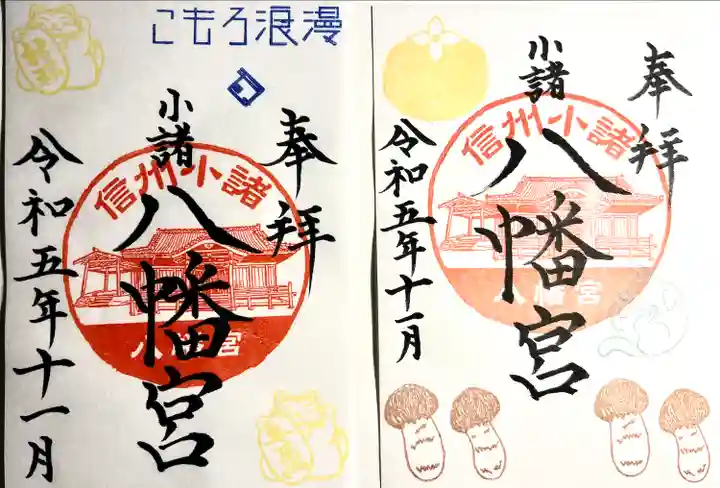 こもろ浪漫
奉拝
信州小諸
小諸
八幡宮
八幡宮
令和五年十一月
奉拝
信州小諸
小諸
八幡宮
八幡宮
令和五年十一月